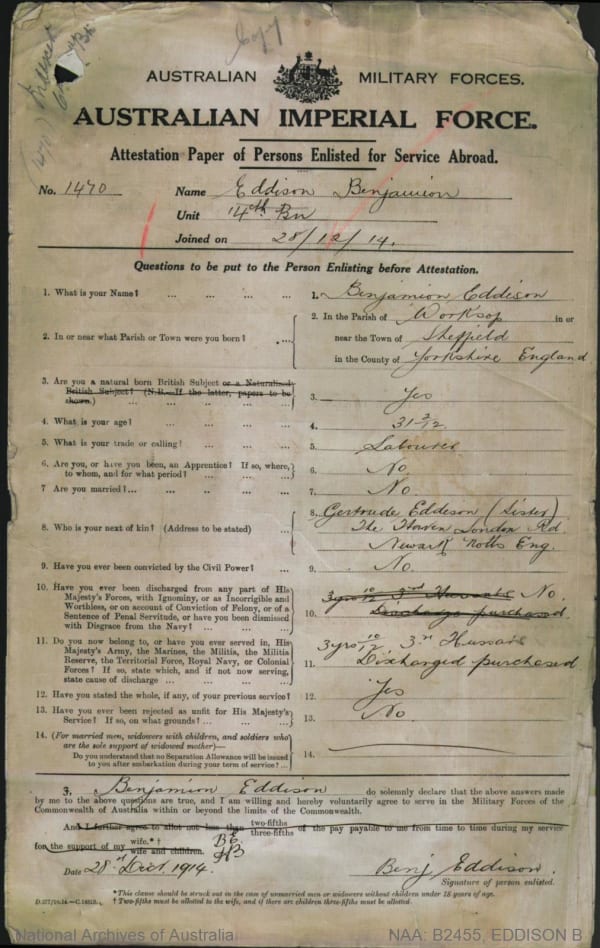 Copy
AUSTRALIAN MILITARY FORCES.
AUSTRALIAN IMPERIAL FORCE.
Attestation Paper of Persons Enlisted for Service Abroad.
No. 1470 Name Eddison Benjamion
Unit 14th Bn
Joined on 28/12/14.
Questions to be put to the Person Enlisting before Attestation.
1. What is your Name? ... ... ... ... 1. Benjamion Eddison
2. In or near what Parish or Town were you born? ... 2. In the Parish of Worksop in or
near the Town of Sheffield
in the County of Yorkshire England
3. Are you a natural born British Subject or a Naturalised
British Subject? (N.B.—If the latter, papers to be
shown.) ... ... ... ... ... 3. Yes
4. What is your age? ... ... ... ... 4. 31 2/12
5. What is your trade or calling? ... ... ... 5. Labourer
6. Are you, or have you been, an Apprentice? If so, where,
to whom, and for what period? ... ... ... 6. No.
7 Are you married?... ... ... ... ... 7. No.
8. Who is your next of kin? (Address to be stated) ... 8. Gertrude Eddison (Sister)
The Haven London Rd.
Newark Notts Eng.
9. Have you ever been convicted by the Civil Power? ... 9. No.
10. Have you ever been discharged from any part of His
Majesty's Forces, with Ignominy, or as Incorrigible and
Worthless, or on account of Conviction of Felony, or of a
Sentence of Penal Servitude, or have you been dismissed
with Disgrace from the Navy? ... ... ... 3 yrs 10/12 3rd Hussars No.
10. Discharge purchased.
11. Do you now belong to, or have you ever served in, His
Majesty's Army, the Marines, the Militia, the Militia
Reserve, the Territorial Force, Royal Navy, or Colonial
Forces? If so, state which, and if not now serving,
state cause of discharge ... ... ... ... 3 yrs 10/12 3rd Hussars
11. Discharged purchased
12. Have you stated the whole, if any, of your previous service? 12. Yes
13. Have you ever been rejected as unfit for His Majesty's
Service? If so, on what grounds? ... ... ... 13. No.
14. (For married men, widowers with children, and soldiers who
are the sole support of widowed mother)—
Do you understand that no Separation Allowance will be issued
to you after embarkation during your term of service? ... 14.
I, Benjamion Eddison do solemnly declare that the above answers made
by me to the above questions are true, and I am willing and hereby voluntarily agree to serve in the Military Forces of the
Commonwealth of Australia within or beyond the limits of the Commonwealth.
And I further agree to allot not less than two-fifths three-fifths of the pay payable to me from time to time during my service
for the support of my wife.*† wife and children. B E
Date 28th Dect. 1914. Benj. Eddison.
Signature of person enlisted.
*This clause should be struck out in the case of unmarried men or widowers without children under 18 years of age.
† Two-fifths must be allotted to the wife, and if there are children three-fifths must be allotted.
National Archives of Australia NAA: B2455, EDDISON B